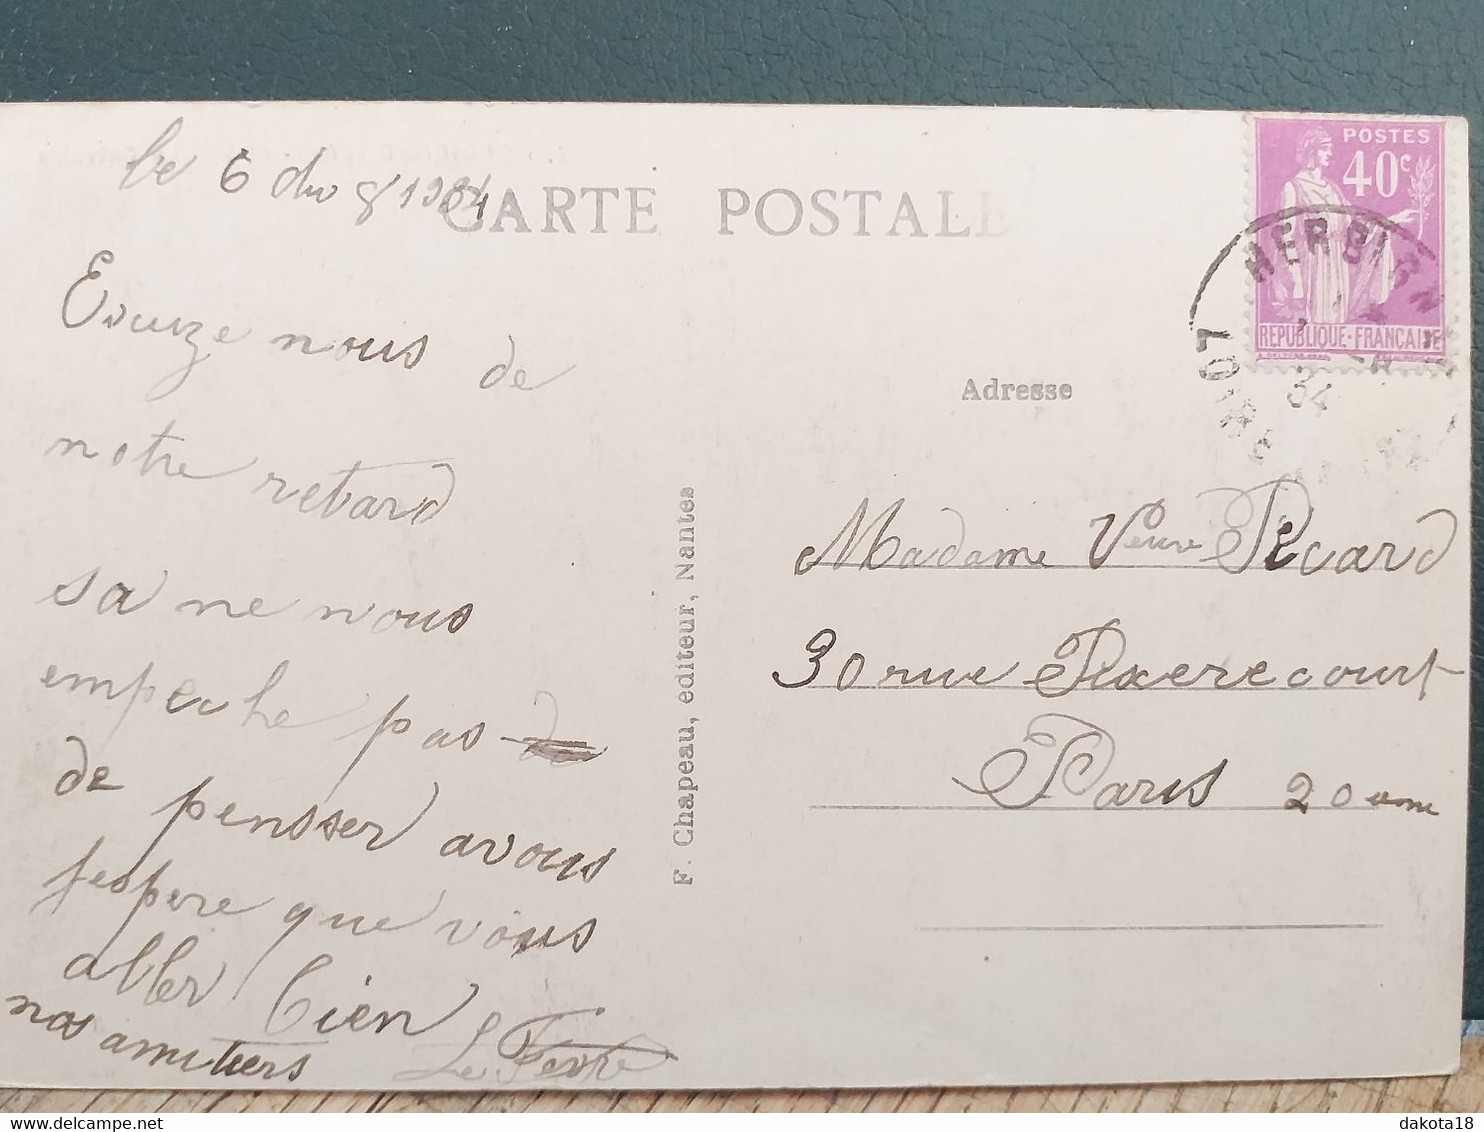 le 6 du 8 1934
CARTE POSTALE
Exuze nous de
notre retard
sa ne nous
empeche pas
de pensser avous
jespere que vous
aller bien
nos amitiers Le Fevre
F. Chapeau, editeur, Nantes
POSTES
40c
REPUBLIQUE-FRANCAISE
HERBIGN
34
LOIRE
Adresse
Madame Veuve Picard
30 rue Pixerecourt
Paris 20 eme
dakota18